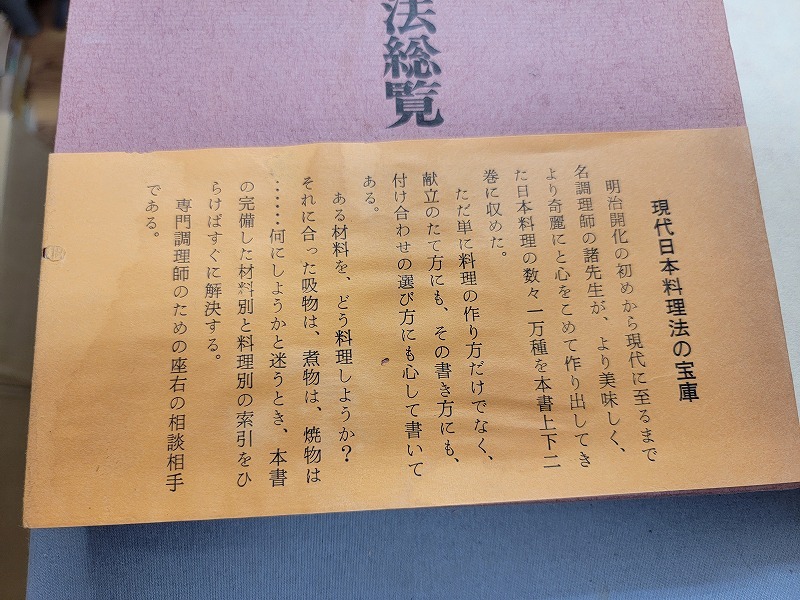 法総覧
現代日本料理法の宝庫
明治開化の初めから現代に至るまで
名調理師の諸先生が、より美味しく、
より奇麗にと心をこめて作り出してき
た日本料理の数々一万種を本書上下二
巻に収めた。
ただ単に料理の作り方だけでなく、
献立のたて方にも、その書き方にも、
付け合わせの選び方にも心して書いて
ある。
ある材料を、どう料理しようか?
それに合った吸物は、煮物は、焼物は
……何にしようかと迷うとき、本書
の完備した材料別と料理別の索引をひ
らけばすぐに解決する。
専門調理師のための座右の相談相手
である。